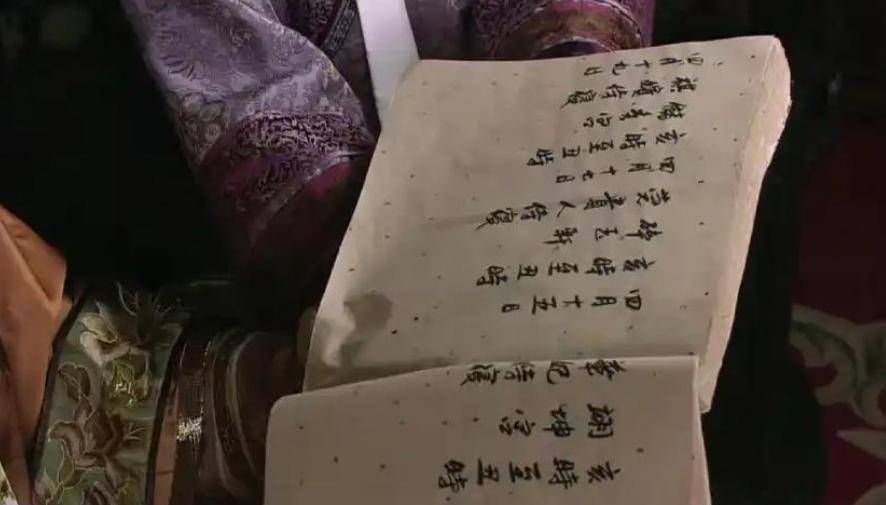 四月十九日
祺嬪侍寢
儲秀宮
亥時至丑時
四月十七日
莞貴人侍寢
碎玉軒
亥時至丑時
四月十五日
華妃侍寢
翊坤宮
亥時至丑時